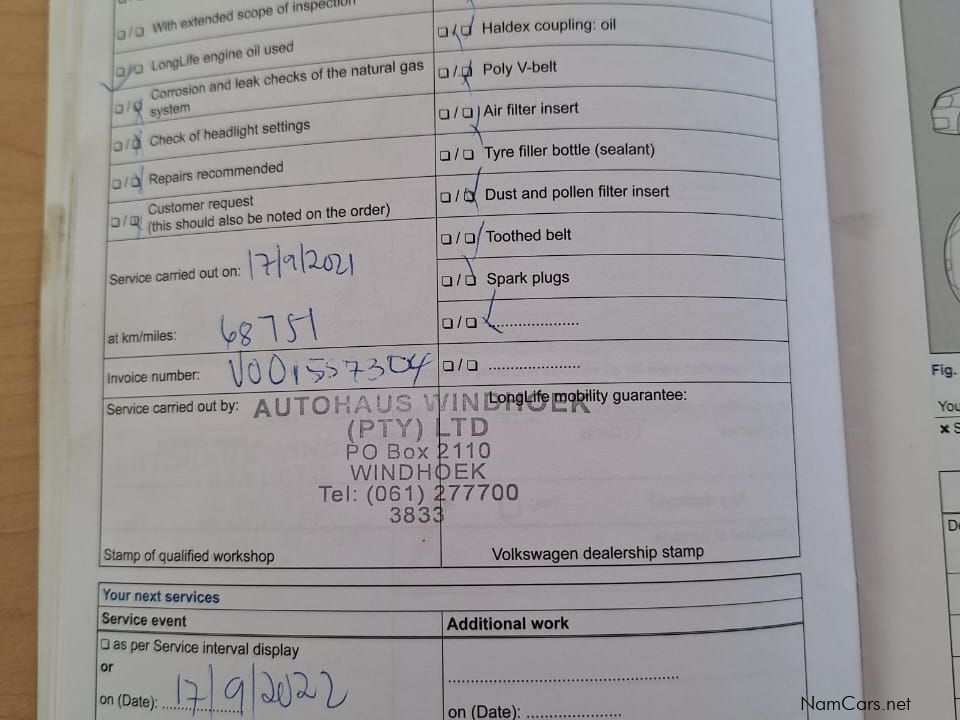 With extended scope of inspection
LongLife engine oil used
Corrosion and leak checks of the natural gas
system
Check of headlight settings
Repairs recommended
Customer request
(this should also be noted on the order)
Service carried out on: 17/9/2021
at km/miles: 68751
Invoice number: V001557304
Haldex coupling: oil
Poly V-belt
Air filter insert
Tyre filler bottle (sealant)
Dust and pollen filter insert
Toothed belt
Spark plugs
Service carried out by:
LongLife mobility guarantee:
AUTOHAUS WINDHOEK
(PTY) LTD
PO Box 2110
WINDHOEK
Tel: (061) 277700
3833
Stamp of qualified workshop
Volkswagen dealership stamp
Your next services
Service event
as per Service interval display
or
on (Date): 17/9/2022
Additional work
on (Date):
Fig.
You
NamCars.net